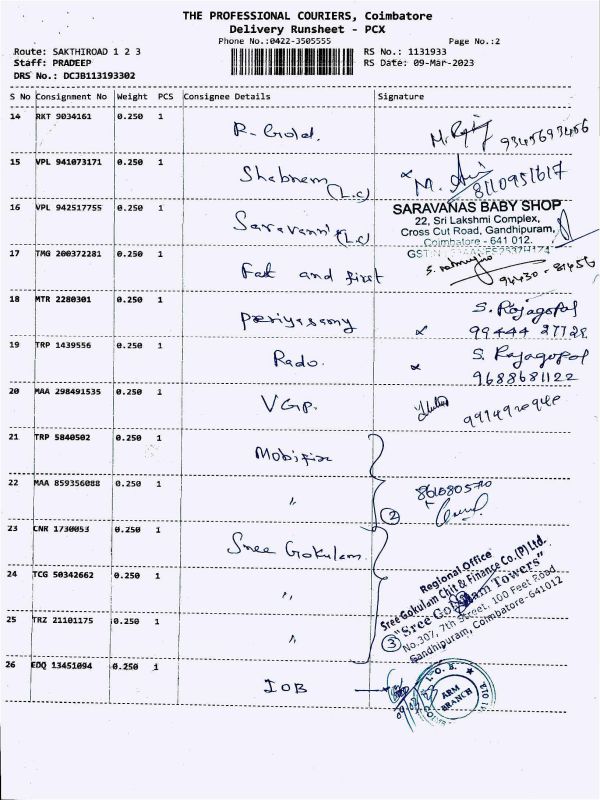 THE PROFESSIONAL COURIERS, Coimbatore
Delivery Runsheet - PCX
Phone No.:0422-3505555 Page No.:2
Route: SAKTHIROAD 1 2 3 RS No.: 1131933
Staff: PRADEEP RS Date: 09-Mar-2023
DRS No.: DCJB113193302
S No Consignment No Weight PCS Consignee Details Signature
14 RKT 9034161 0.250 1 R-Gold. 9345693456
15 VPL 941073171 0.250 1 Shabnam (L.c) 8110951617
16 VPL 942517755 0.250 1 (L.c)
SARAVANAS BABY SHOP
22, Sri Lakshmi Complex,
Cross Cut Road, Gandhipuram,
Coimbatore - 641 012.
17 TMG 200372281 0.250 1 Fat and first 94430-81456
18 MTR 2280301 0.250 1 periyasamy S. Rajagopal
99444 27728
19 TRP 1439556 0.250 1 Rado. S. Rajagopal
9688681122
20 MAA 298491535 0.250 1 VGP.
21 TRP 5840502 0.250 1 Mobifix
22 MAA 859356088 0.250 1 〃 2
23 CNR 1730053 0.250 1 Sree Gokulam
24 TCG 50342662 0.250 1 〃
25 TRZ 21101175 0.250 1 〃 3
Regional Office
Sree Gokulam Chit & Finance Co.(P) Ltd.
"Sree Gokulam Towers"
No.307, 7th Street, 100 Feet Road,
Gandhipuram, Coimbatore-641012
26 EDQ 13451094 0.250 1 IOB
I. O. B.
ARM
BRANCH